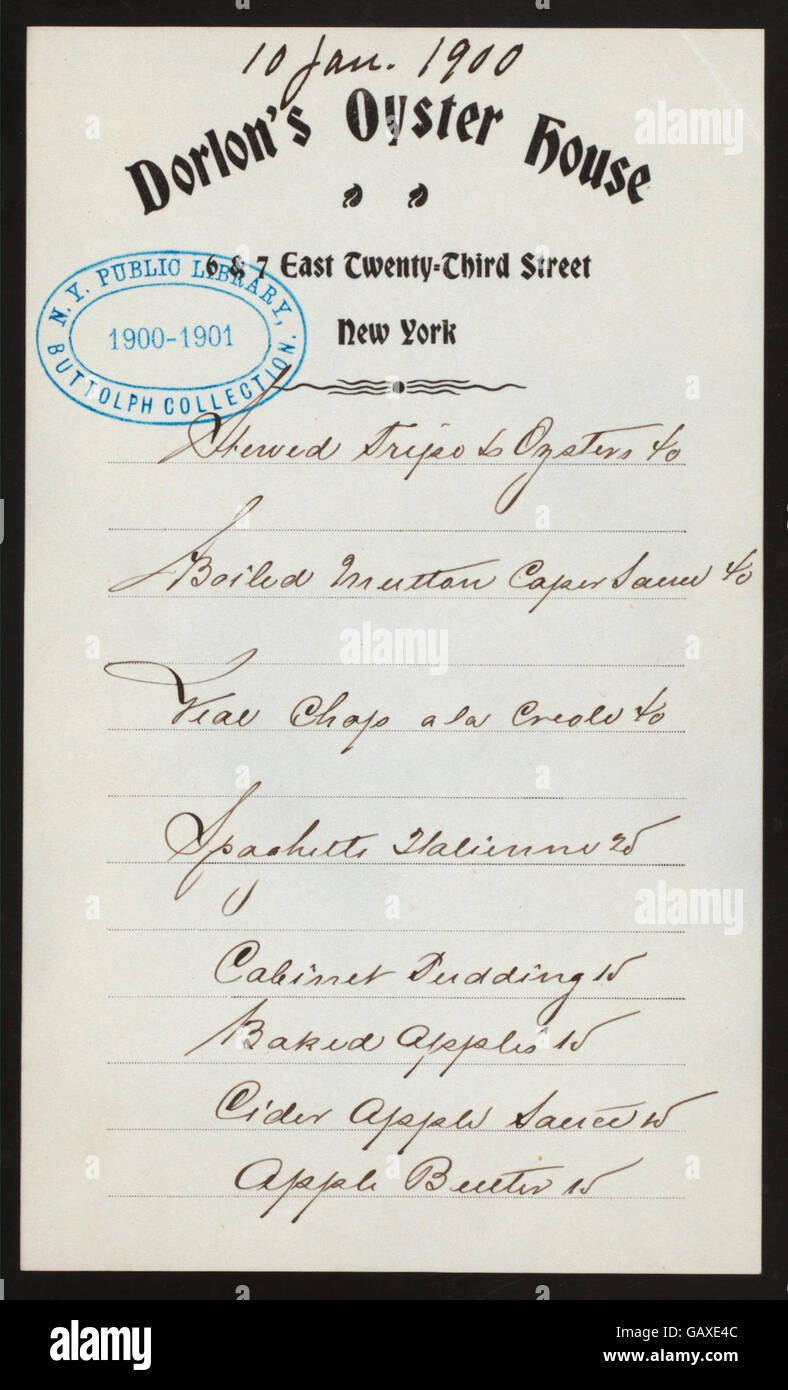 10 Jan. 1900
Dorlon's Oyster House
6 & 7 East Twenty-Third Street
New York
N. Y. PUBLIC LIBRARY,
1900-1901
BUTTOLPH COLLECTION.
Stewed Tripe & Oysters 40
Boiled Mutton Caper Sauce 40
Veal Chop a la Creole 40
Spaghetti Italienne 25
Cabinet Pudding 15
Baked Apples 15
Cider Apple Sauce 15
Apple Butter 15
alamy
alamy
alamy
alamy
Image ID: GAXE4C
www.alamy.com